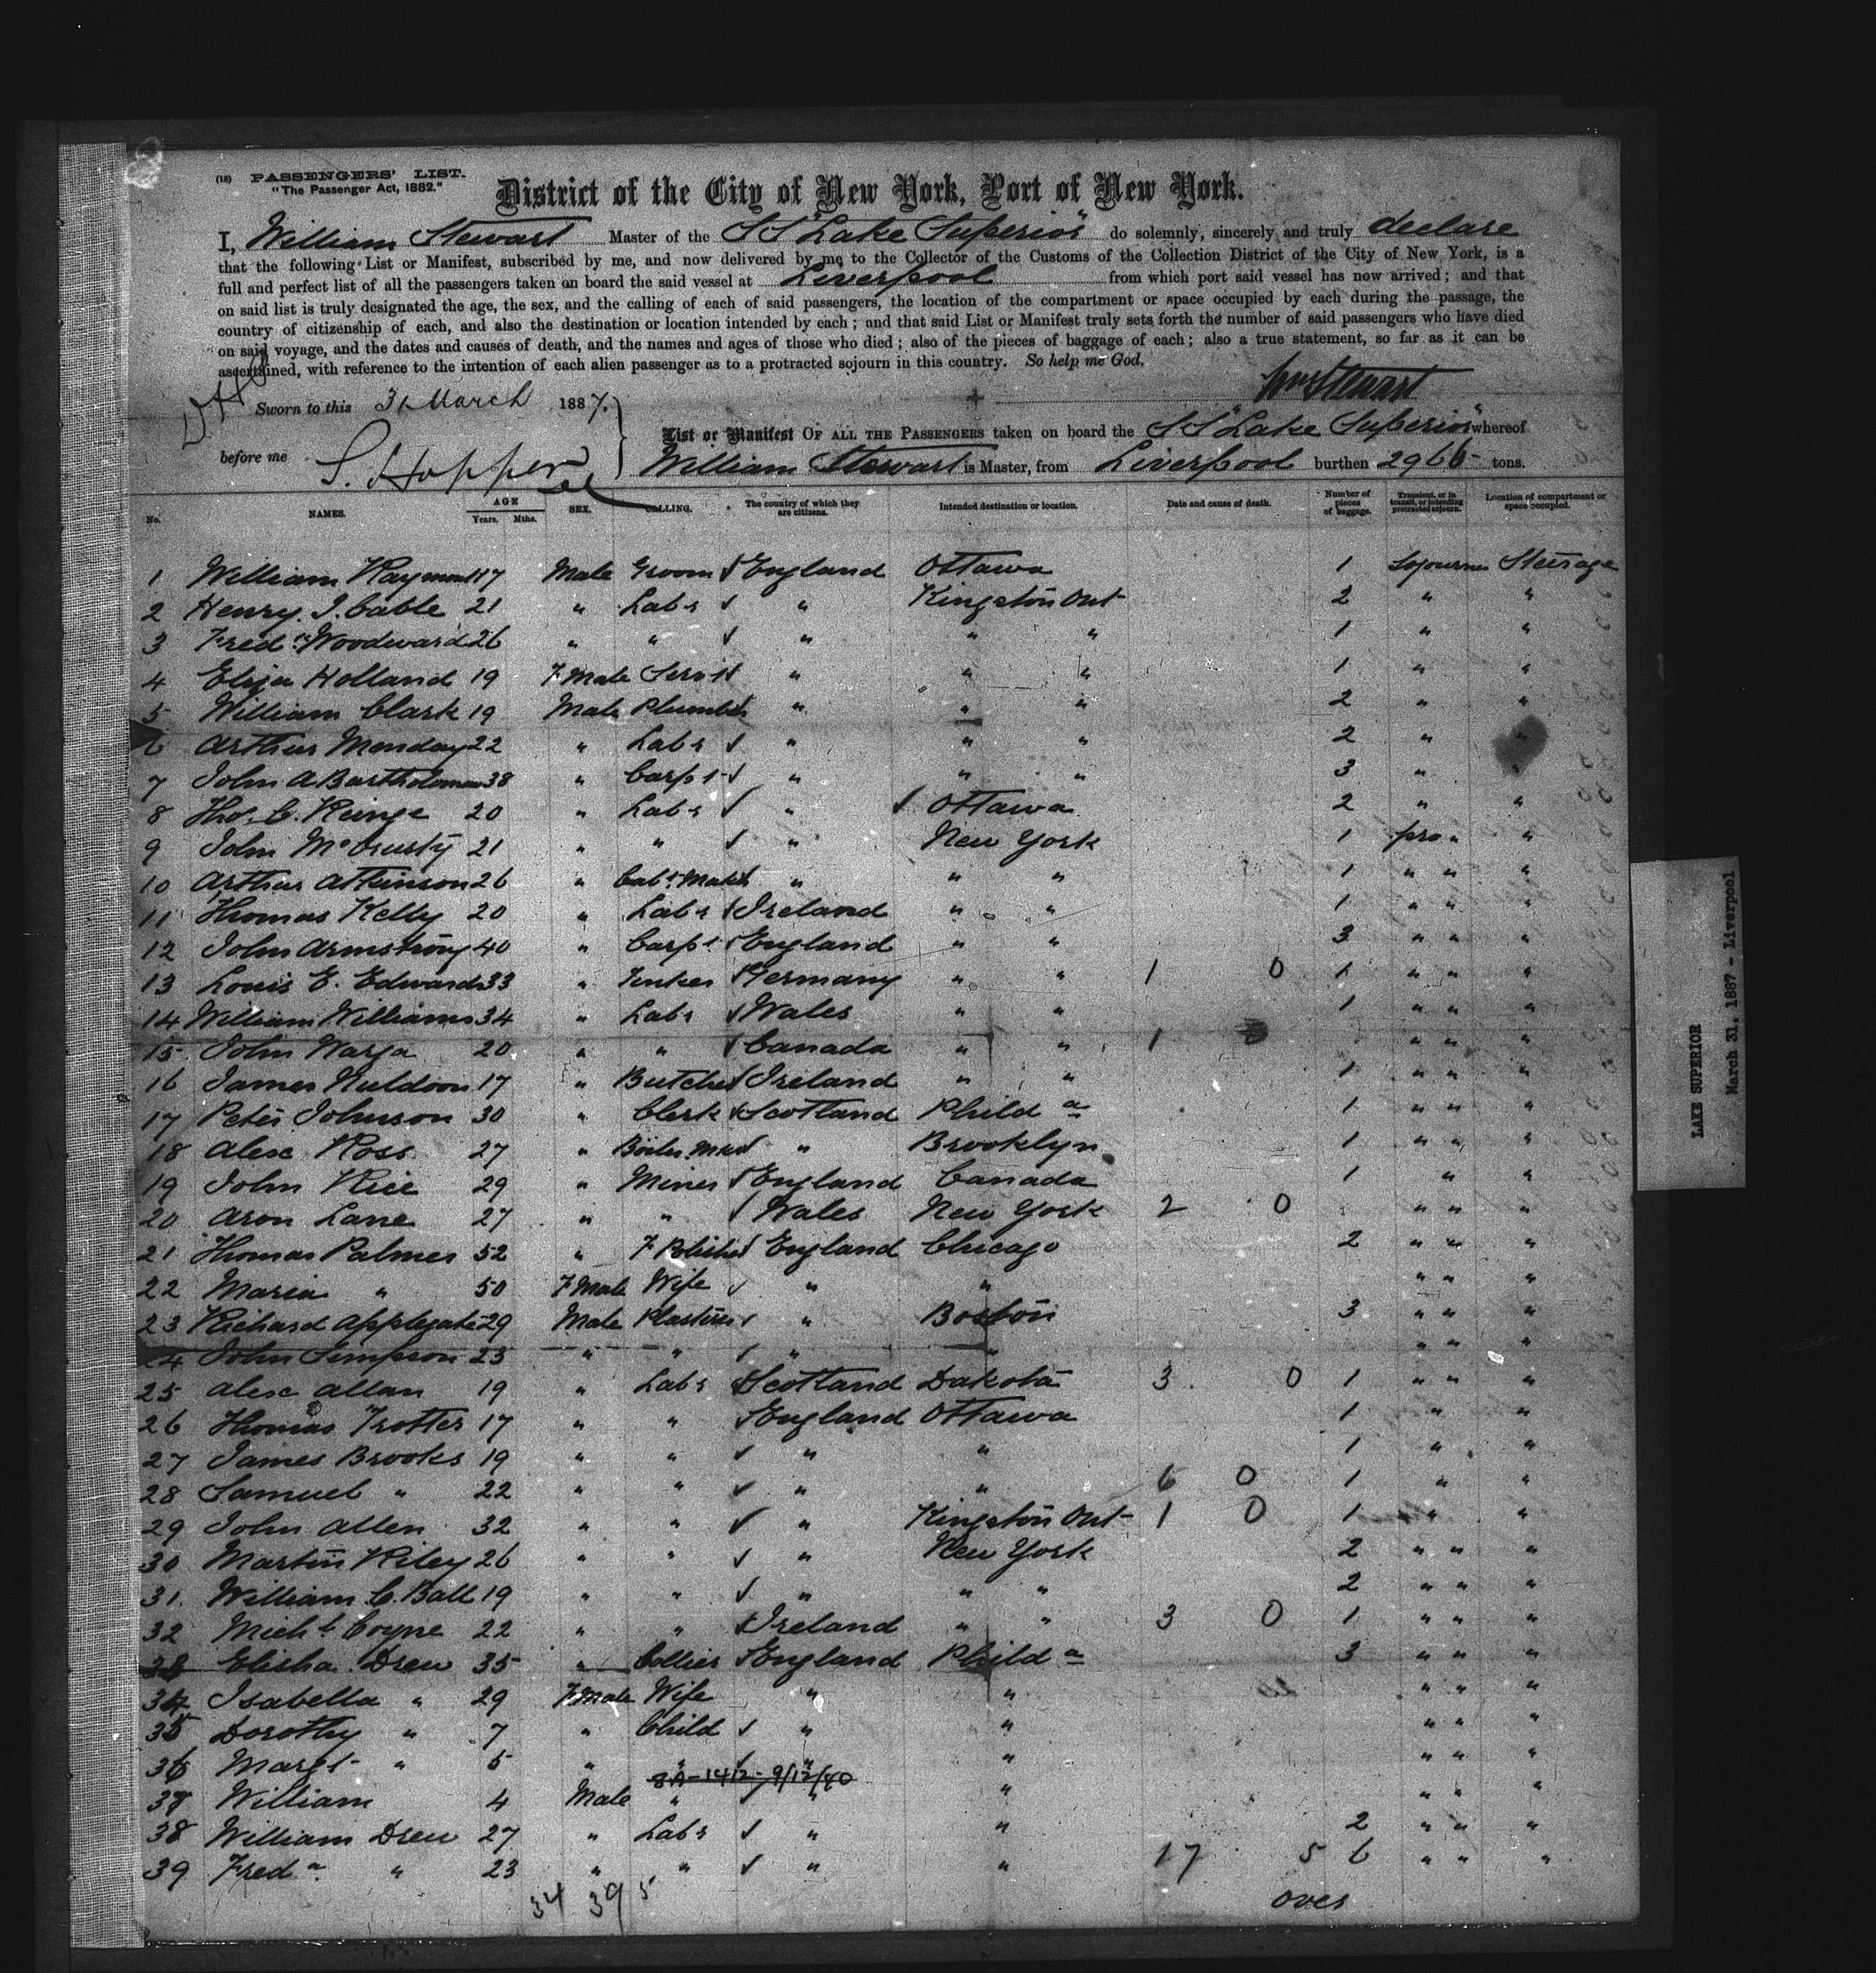 (18) PASSENGERS' LIST.
"The Passenger Act, 1882."
District of the City of New York, Port of New York.
I, William Stewart Master of the SS "Lake Superior" do solemnly, sincerely and truly declare
that the following List or Manifest, subscribed by me, and now delivered by me to the Collector of the Customs of the Collection District of the City of New York, is a
full and perfect list of all the passengers taken on board the said vessel at Liverpool from which port said vessel has now arrived; and that
on said list is truly designated the age, the sex, and the calling of each of said passengers, the location of the compartment or space occupied by each during the passage, the
country of citizenship of each, and also the destination or location intended by each; and that said List or Manifest truly sets forth the number of said passengers who have died
on said voyage, and the dates and causes of death, and the names and ages of those who died; also of the pieces of baggage of each; also a true statement, so far as it can be
ascertained, with reference to the intention of each alien passenger as to a protracted sojourn in this country. So help me God.
Wm Stewart
Sworn to this 31 March 1887.
before me S. Hopper
List or Manifest OF ALL THE PASSENGERS taken on board the SS "Lake Superior" whereof
William Stewart is Master, from Liverpool burthen 2966 tons.
No. NAMES. AGE Years. Mths. SEX. CALLING. The country of which they are citizens. Intended destination or location. Date and cause of death. Number of pieces of baggage. Transient, or in transit, or intending protracted sojourn. Location of compartment or space occupied.
1 William Raymont 17 Male Groom ✓ England Ottawa 1 Sojourn Steerage
2 Henry. J. Cable 21 " Labr ✓ " Kingston Ont 2 " "
3 Fred. Woodward 26 " " ✓ " " " 1 " "
4 Eliza Holland 19 F Male Servt ✓ " " " 1 " "
5 William Clark 19 Male Plumber " " " 2 " "
6 Arthur Monday 22 " Labr ✓ " " " 2 " "
7 John A Bartholomew 38 " Carpt ✓ " " " 3 " "
8 Tho. C. 20 " Labr ✓ " ✓ Ottawa 2 " "
9 John 21 " " ✓ " New York 1 pro " "
10 Arthur Atkinson 26 " Cabt Maker " " " 1 " " "
11 Thomas Kelly 20 " Labr ✓ Ireland " " 1 " " "
12 John Armstrong 40 " Carpt ✓ England " " 3 " " "
13 Louis E. Edwards 33 " ✓ Germany " " 1 0 1 " " "
14 William Williams 34 " Labr ✓ Wales " " 1 " " "
15 John 20 " " ✓ Canada " " 1 " " "
16 James Muldoon 17 " Butcher ✓ Ireland " " 1 " " "
17 Peter Johnson 30 " Clerk ✓ Scotland Philda 1 " " "
18 Alex Ross 27 " Boiler Mkr ✓ " Brooklyn 1 " " "
19 John Rice 29 " Miner ✓ England Canada 1 " "
20 Aron Lane 27 " " ✓ Wales New York 2 0 " " "
21 Thomas Palmer 52 " F Polisher ✓ England Chicago 2 " " "
22 Maria " 50 F Male Wife ✓ " " " " "
23 Richard Applegate 29 Male Plasterer ✓ " Boston 3 " " "
24 John Simpson 23 " " ✓ " " " " "
25 Alex Allan 19 " Labr ✓ Scotland Dakota 3 0 1 " " "
26 Thomas Trotter 17 " " England Ottawa 1 " "
27 James Brooks 19 " " ✓ " " 1 " "
28 Samuel " 22 " " ✓ " " 6 0 1 " "
29 John Allen 32 " " ✓ " Kingston Ont 1 0 1 " "
30 Martin Riley 26 " " ✓ " New York 2 " " "
31. William C. Ball 19 " " ✓ " " " 2 " " "
32 Michl Coyne 22 " " ✓ Ireland " " 3 0 1 " " "
33 Elisha Drew 35 " Collier ✓ England Philda 3 " " "
34 Isabella " 29 F Male Wife " " " " "
35 Dorothy " 7 " Child ✓ " " " " "
36 Margt " 5 " " ✓ " " " " "
8A-1412-9/12/40
37 William 4 Male " ✓ " " " " "
38 William Drew 27 " Labr ✓ " " 2 " " "
39 Freda " 23 " " ✓ " " 17 5 6 " " "
34 39 5
over
LAKE SUPERIOR
March 31, 1887 - Liverpool